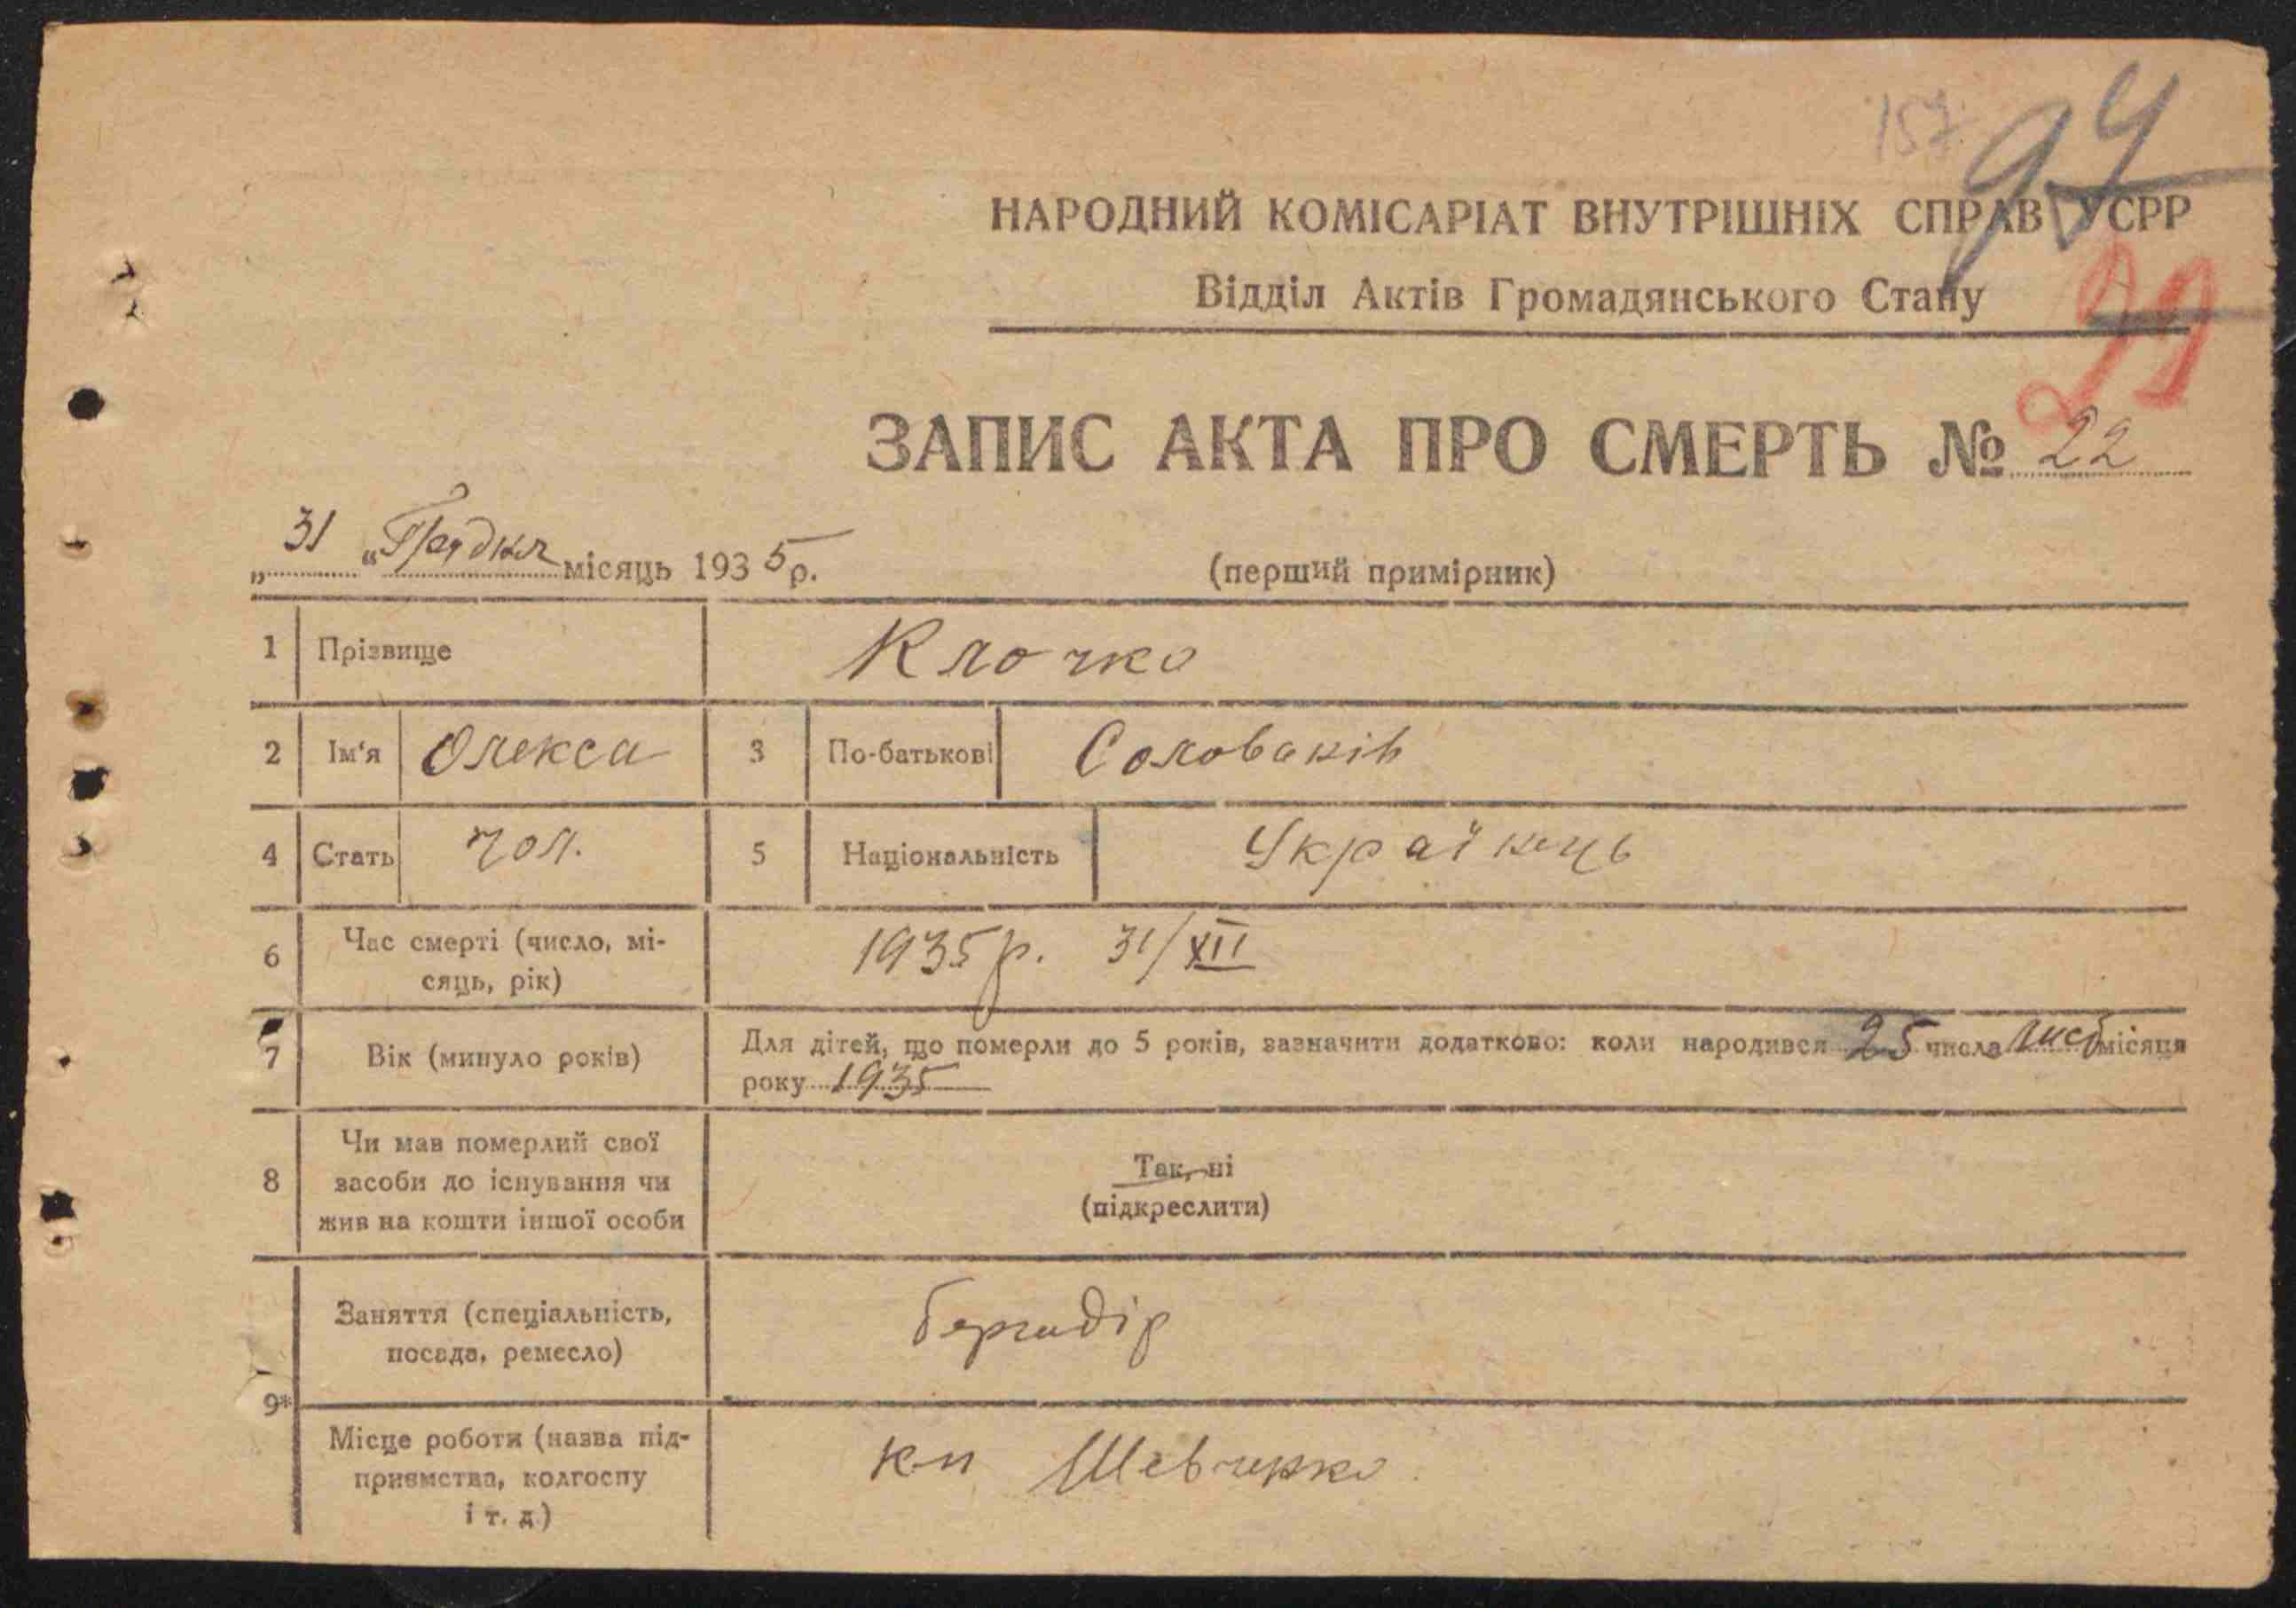 157
94
НАРОДНИЙ КОМІСАРІАТ ВНУТРІШНІХ СПРАВ УСРР
Відділ Актів Громадянського Стану
99
ЗАПИС АКТА ПРО СМЕРТЬ № 22
„ 31 “ Грудня місяць 1935 р.
(перший примірник)
1 Прізвище Клочко
2 Ім‘я Олекса 3 По-батькові
4 Стать чол. 5 Національність Українець
6 Час смерті (число, мі-
сяць, рік) 1935 р. 31/XII
7 Вік (минуло років) Для дітей, що померли до 5 років, зазначити додатково: коли народився 25 числа лист місяця
року 1935
8 Чи мав померлий свої
засоби до існування чи
жив на кошти іншої особи
Так, ні
(підкреслити)
9*
Заняття (спеціальність,
посада, ремесло) бергадір
Місце роботи (назва під-
приємства, колгоспу
і т. д.)
к-п Шевченко